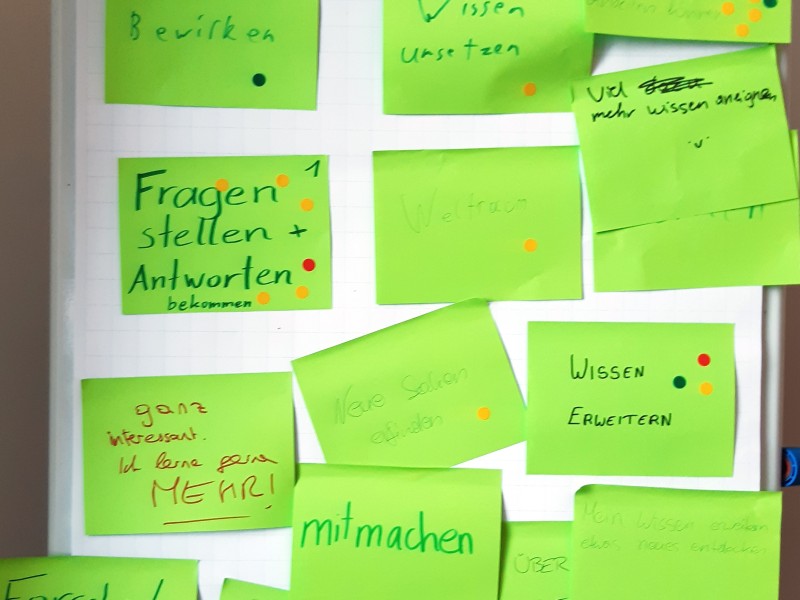 Bewirken
Wissen
umsetzen
Viel
mehr wissen aneignen
Fragen 1
stellen +
Antworten
bekommen
Weltraum
Neue Sachen
WISSEN
ERWEITERN
ganz
interessant.
Ich lerne gerne
MEHR!
mitmachen
ÜBER
Mein Wissen erweitern
etwas neues entdecken